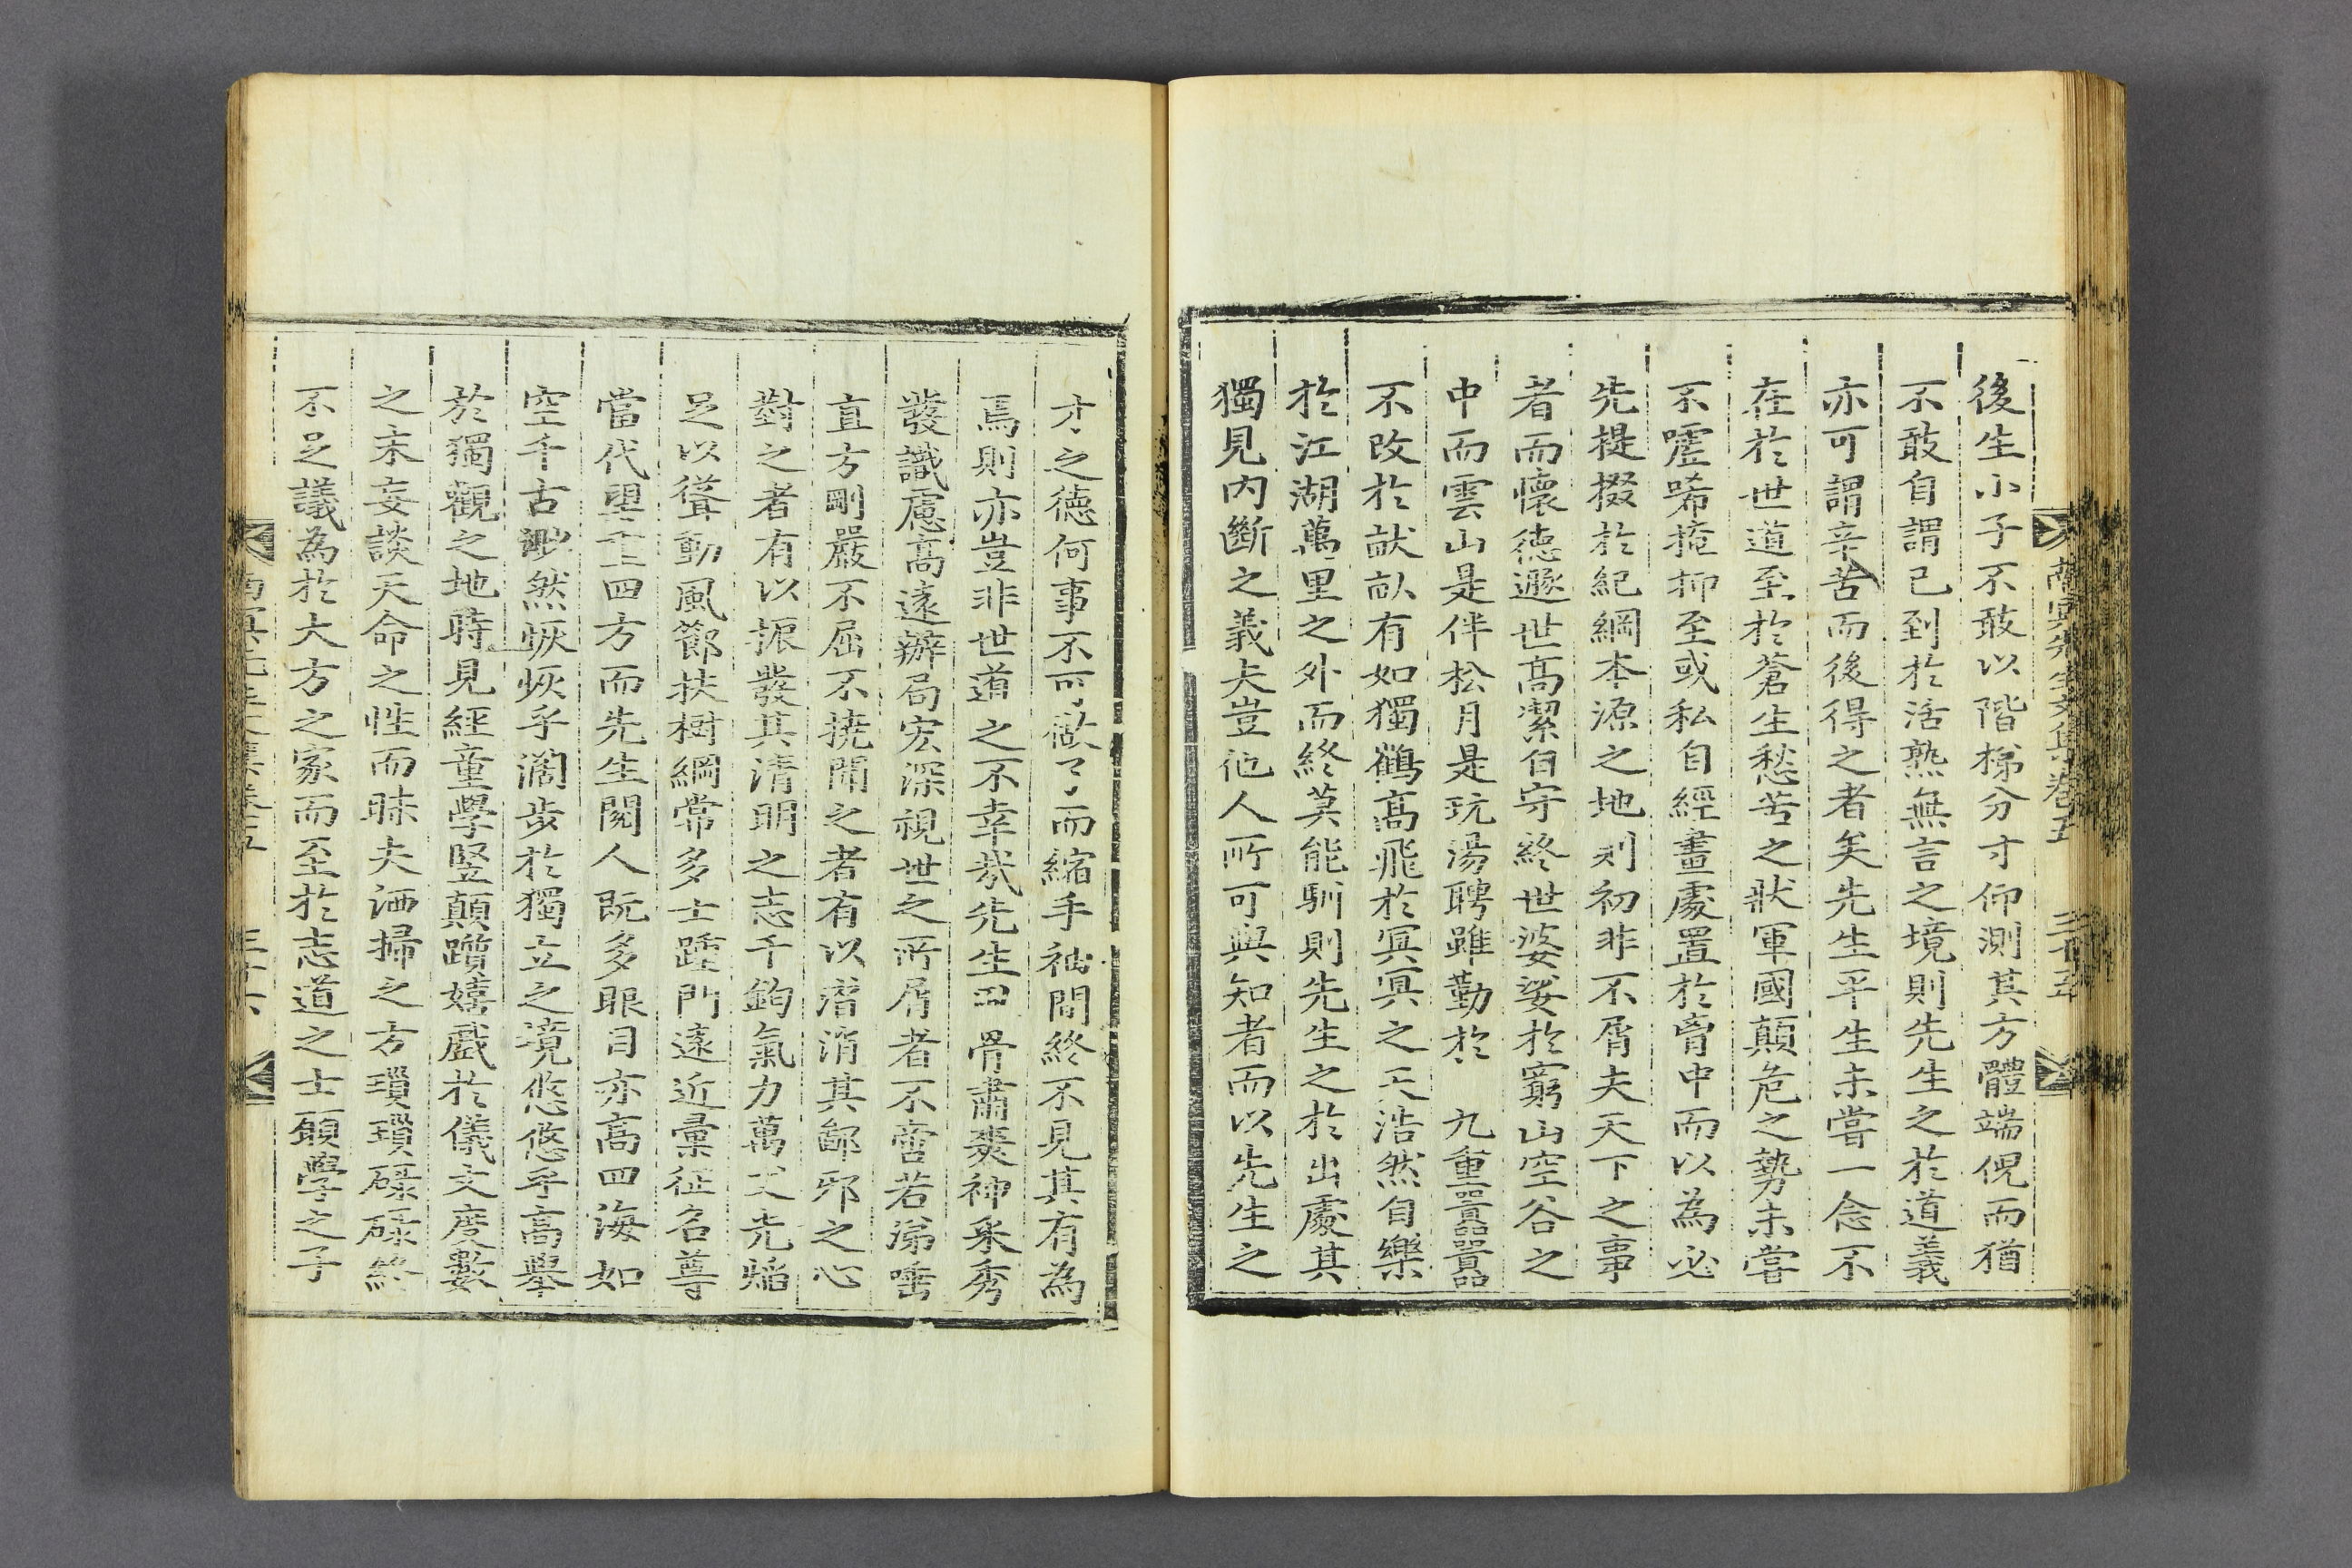 後生小子不敢以階梯分寸仰測其方體端倪而猶
不敢自謂已到於活熟無言之境則先生之於道義
亦可謂辛苦而後得之者矣先生平生未嘗一念不
在於世道至於蒼生愁苦之狀軍國顛危之勢未嘗
不噓唏掩抑至或私自經畫處置於胷中而以為必
先提掇於紀綱本源之地則初非不屑夫天下之事
者而懷德遯世高潔自守終世婆娑於窮山空谷之
中而雲山是伴松月是玩湯聘雖勤於 九重囂囂
不改於畎畝有如獨鶴高飛於冥冥之天浩然自樂
於江湖萬里之外而終莫能馴則先生之於出處其
獨見内斷之義夫豈他人所可與知者而以先生之
南冥先生文集卷五 三十五
才之德何事不可做了而縮手袖間終不見其有為
焉則亦豈非世道之不幸㢤先生骨肅爽神采秀
發識慮高遠辦局宏深視世之所屑者不啻若涕唾
直方剛嚴不屈不撓聞之者有以潛消其鄙邪之心
對之者有以振發其清明之志千鈞氣力萬丈光焰
足以聳動風節扶樹綱常多士踵門遠近彙征名尊
當代望重四方而先生閱人既多眼目亦高四海如
空千古渺然恢恢乎濶步於獨立之境悠悠乎高擧
於獨觀之地時見經童學豎顛躓嬉戲於儀文度數
之末妄談天命之性而昧夫洒掃之方瑣瑣碌碌終
不足議為於大方之家而至於志道之士願學之子
南冥先生文集卷五 三十六